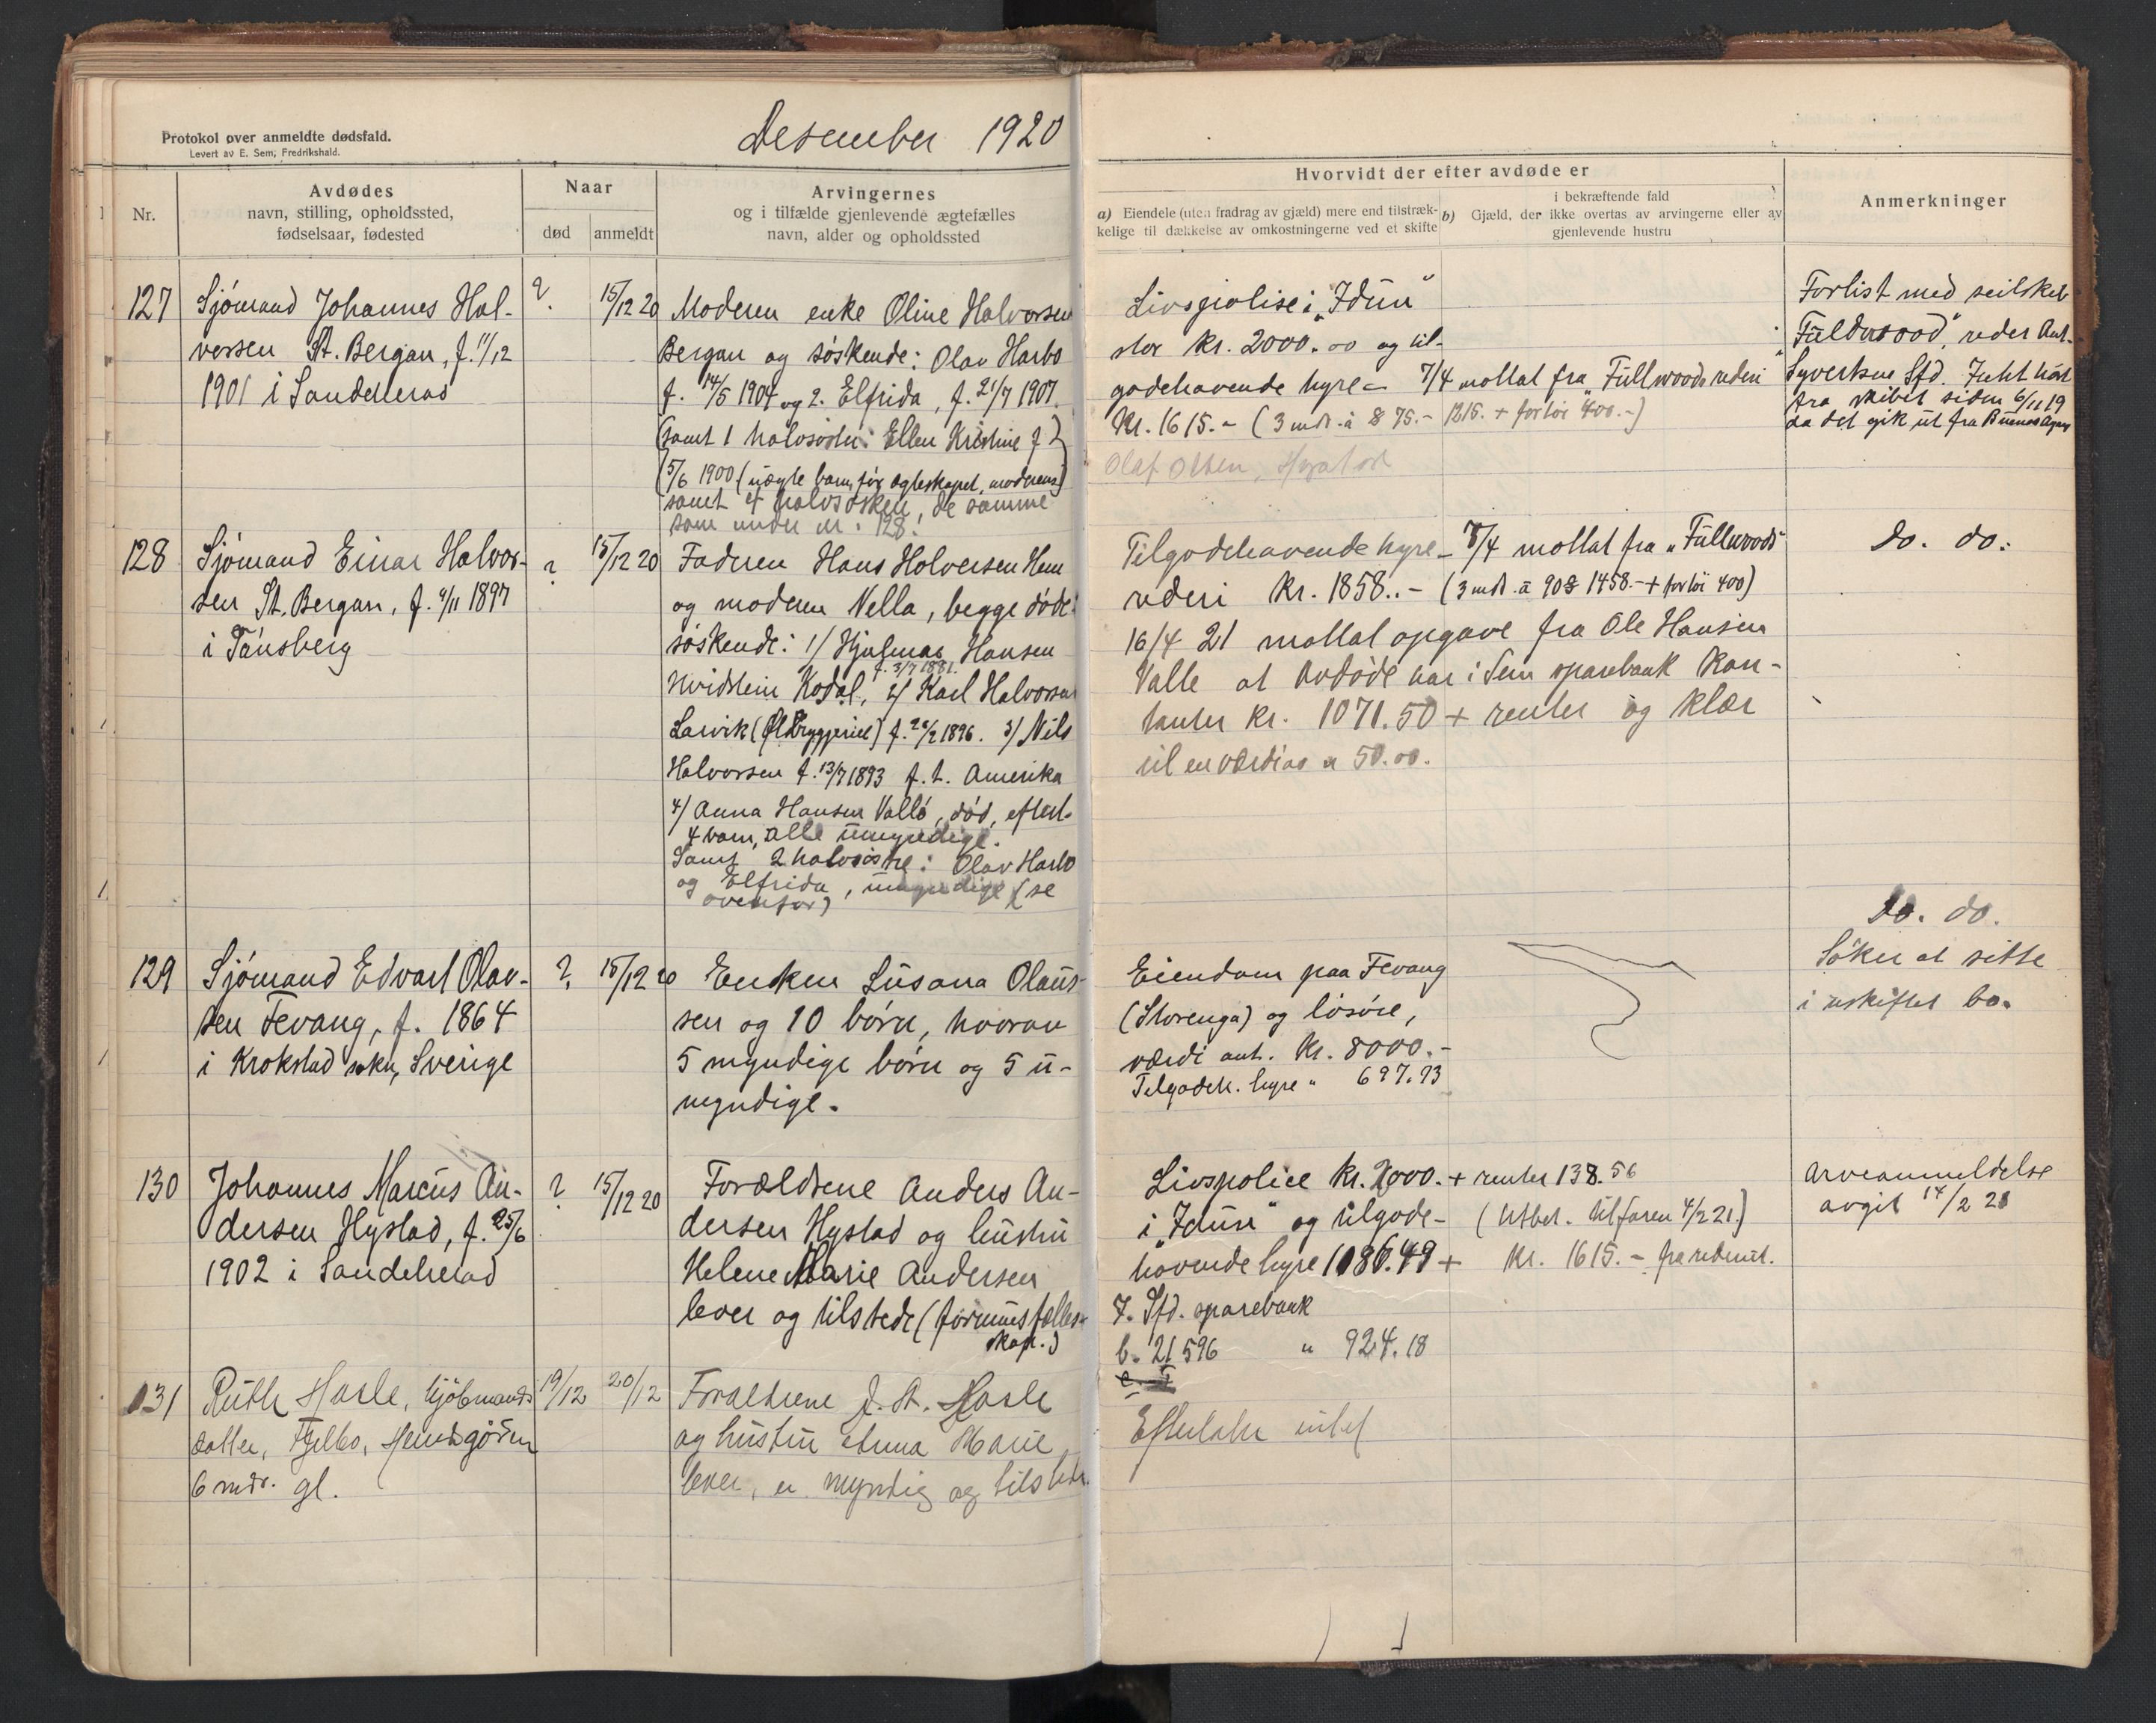 Protokol over anmeldte dødsfald.
Levert av E. Sem, Fredrikshald.
Desember 1920
Nr.
Avdødes
navn, stilling, opholdssted,
fødselsaar, fødested
Naar
død
anmeldt
Arvingernes
og i tilfælde gjenlevende ægtefælles
navn, alder og opholdssted
Hvorvidt der efter avdøde er
a) Eiendele (uten fradrag av gjæld) mere end tilstræk-
kelige til dækkelse av omkostningerne ved et skifte
i bekræftende fald
b) Gjæld, der ikke overtas av arvingerne eller av
gjenlevende hustru
Anmerkninger
127
Sjömand Johannes Hal-
vorsen St. Bergan, f. 11/12
1901 i Sandeherad
?
15/12 20
Moderen enke Oline Halvorsen
Bergan og söskende: Olav Harbo
f. 14/5 1904 og 2. Elfrida, f. 21/7 1907.
(samt 1 halvsöster: Ellen Kristine f.
5/6 1900 (uægte barn för ægteskapet, moderens)
samt 4 halvsösken, de samme
som under nr. 128!
Livspolise i "Idun"
stor kr. 2000.00 og til-
godehavende hyre - 7/4 mottat fra "Fullwoods rederi
Kr. 1615.- (3 mdr. à $ 75.- 1215. + forlis 400.-)
Olaf Olsen,
Forlist med seilskib
"Fuldwood", reder Ant.
Syvertsen Sfd. Intet hört
fra skibet siden 6/11 19
da det gik ut fra Buenos Ayres
128
Sjömand Einar Halvor-
sen St. Bergan, f. 4/11 1897
i Tönsberg
?
15/12 20
Faderen Hans Halvorsen Hem
og moderen Nella, begge döde.
söskende: 1/ Hjalmar Hansen
f. 3/7 1881.
Hvidstein Kodal, 2/ Karl Halvorsen
Larvik (Ølbryggeriet) f. 28/2 1896. 3/ Nils
Halvorsen f. 13/7 1893 f. t. Amerika
4/ Anna Hansen Vallö, död, efterl.
4 barn, alle umyndige.
Samt 2 halvsöstre: Olav Harbo
og Elfrida, umyndige (se
ovenfor)
Tilgodehavende hyre - 7/4 mottat fra "Fullwoods"
rederi Kr. 1858.- (3 mdr. à 90$ 1458.- + forlis 400)
16/4 21 mottat opgave fra Ole Hansen
Valle at avdöde har i Sem sparebank kon-
tanter kr. 1071.50 + renter og klær
til en værdi av 50.00.
do. do.
129
Sjömand Edvart Olav-
sen Fevang, f. 1864
i Krokstad sokn, Sverige
?
15/12 20
Enken Susana Olaus-
sen og 10 börn, hvorav
5 myndige börn og 5 u-
myndige.
Eiendom paa Fevang
(Storenga) og lösöre,
værdi ant. Kr. 8000.-
Tilgodeh. hyre " 697.93
do. do.
Söker at sitte
i uskiftet bo.
130
Johannes Marcus An-
dersen Hystad, f. 25/6
1902 i Sandeherad
?
15/12 20
Forældrene Anders An-
dersen Hystad og hustru
Helene Marie Andersen
lever og tilstede (formuesfælles-
skap.)
Livspolice kr. 2000. + renter 138.56
i "Idun" og tilgode- (Utbet. til faren 4/2 21.)
havende hyre 1086.49 + Kr. 1615.- fra rederiet.
I. Sfd. sparebank
b. 21596 " 924.18
Arveanmeldelse
avgit 14/2 21
131
Ruth Hasle, kjöbmands
datter, Fjelbo,
6 mdr. gl.
19/12
20/12
Forældrene J. A. Hasle
og hustru Anna Marie
lever, er myndig og tilstede.
Efterlater intet